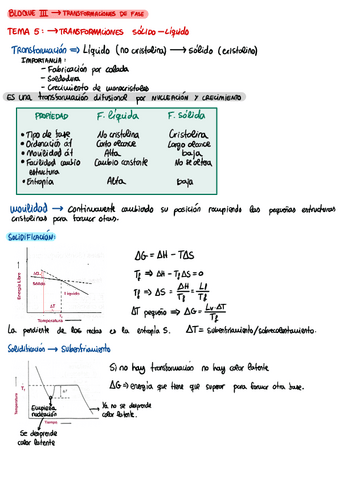 BLOQUE III → TRANSFORMACIONES DE FASE
TEMA 5: → TRANSFORMACIONES SÓLIDO – LÍQUIDO
Transformación ⇒ Líquido (no cristalino) → sólido (cristalino)
IMPORTANCIA:
– Fabricación por colada
– Soldadura
– Crecimiento de monocristales
ES una transformación difusional por NUCLEACIÓN y CRECIMIENTO
PROPIEDAD F. líquida F. sólida
• Tipo de fase No cristalina Cristalina
• Ordenación át Corto alcance Largo alcance
• Movilidad át Alta baja
• Facilidad cambio estructura Cambio constante No se altera
• Entropía Alta baja
movilidad → Continuamente cambiando su posición rompiendo las pequeñas estructuras
cristalinas para formar otras.
SOLIDIFICACIÓN:
ΔG = ΔH – TΔS
Tf ⇒ ΔH – Tf ΔS = 0
Tf ⇒ ΔS = ΔH/Tf = Lf/Tf
ΔT pequeño ⇒ ΔG = Lv·ΔT/Tf
Energía Libre
ΔG
Sólido
Líquido
ΔT
Temperatura
La pendiente de las rectas es la entropía S. ΔT = subenfriamiento/sobrecalentamiento.
Solidificación → Subenfriamiento
Si no hay transformación no hay calor latente
ΔG ⇒ energía que tiene que superar para formar otra fase.
Temperatura
Empieza
nucleación
Tiempo
Ya no se desprende
calor latente.
Se desprende
calor latente